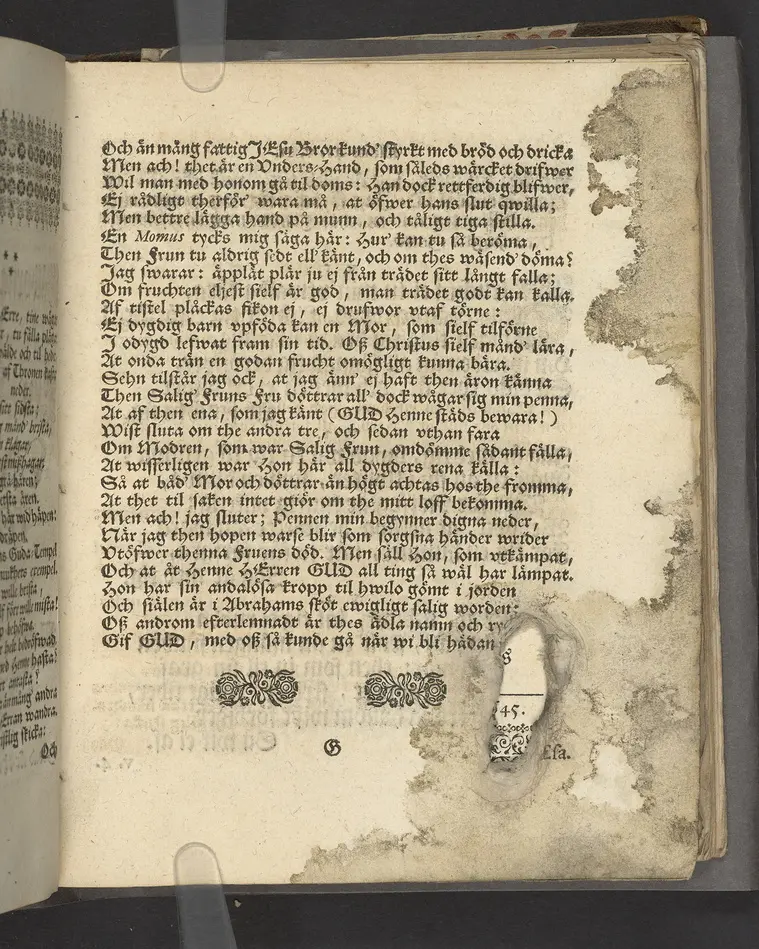 Erre, tine
, tu fälla
wälde och til
af Thronen
neder.
sidsta;
mänd' brista,
klagar,
gråhåren;
ersta åren.
här wid häpen:
dräpen.
Guds Tempel
exempel.
wille brista,
wille mista!
behöfwa.
bedröfwad
Henne hasta?
antasta?
mäng andra
Erran wandra.
skicka:
Och
Och än mång fattig JEsu Bror kund' styrkt med bröd och dricka
Men ach! thet är en Vnders-Hand, som således wärcket drifwer
Wil man med honom gå til doms: Han dock rettferdig blifwer,
Ej rådligt therför wara må, at öfwer hans slut qwilla;
Men bettre lägga hand på munn, och tåligt tiga stilla.
En Momus tycks mig säga här: Hur' kan tu så beröma,
Then Frun tu aldrig sedt ell' känt, och om thes wäsend' döma?
Jag swarar: äpplät plär ju ej från trädet sitt långt falla;
Om fruchten eljest sielf är god, man trädet godt kan kalla.
Af tistel plåckas fikon ej, ej drufwor vtaf törne:
Ej dygdig barn vpföda kan en Mor, som sielf tilförne
J odygd lefwat fram sin tid. Oß Christus sielf månd' lära,
At onda trän en godan frucht omögligt kunna bära.
Sehn tilstår jag ock, at jag änn' ej haft then äron känna
Then Salig' Fruns Fru döttrar all' dock wågar sig min penna,
At af then ena, som jag känt (GUD Henne städs bewara!)
Wist sluta om the andra tre, och sedan vthan fara
Om Modren, som war Salig Frun, omdömme sådant fälla,
At wisserligen war Hon här all dygders rena källa:
Så at båd' Mor och döttrar än högt achtas hos the fromma,
At thet til saken intet giör om the mitt loff bekomma.
Men ach! jag sluter; Pennen min begynner digna neder,
När jag then hopen warse blir som sorgsna händer wrider
Vtöfwer thenna Fruens död. Men säll Hon, som vtkämpat,
Och at åt Henne HErren GUD all ting så wäl har lämpat.
Hon har sin andalösa kropp til hwilo gömt i jorden
Och siälen är i Abrahams sköt ewigligt salig worden:
Oß androm efterlemnadt är thes ädla namn och
Gif GUD, med oß så kunde gå när wi bli hädan
45.
G